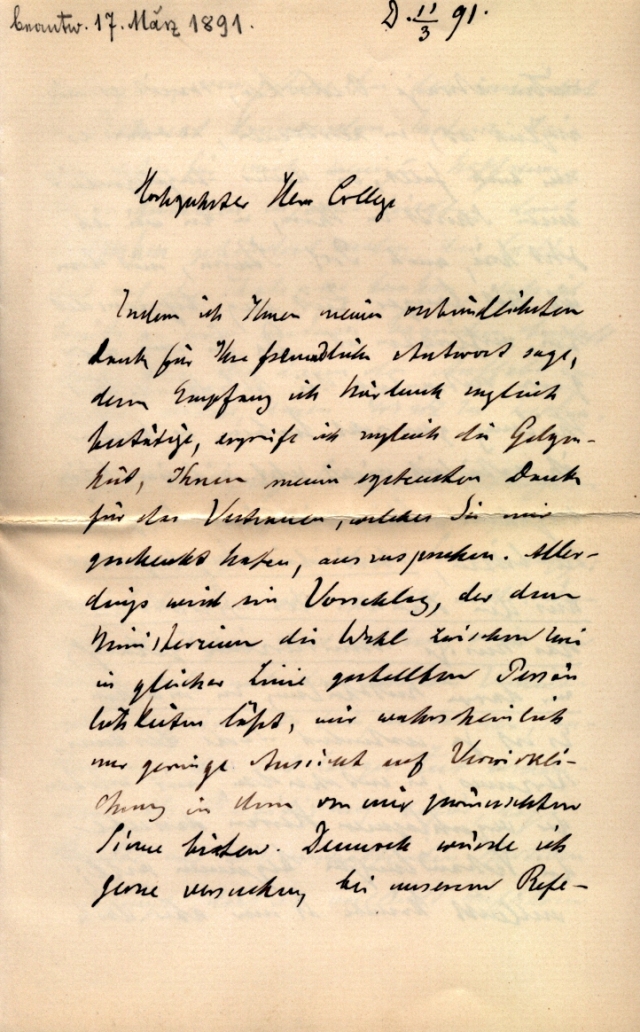 beantw. 17. März 1891.
D. 11/3 91.
Hochgeehrter Herr College
Indem ich Ihnen meinen verbindlichsten
Dank für Ihre freundliche Antwort sage,
deren Empfang ich hierdurch zugleich
bestätige, ergreife ich zugleich die Gelegen-
heit, Ihnen meinen ergebensten Dank
für das Vertrauen, welches Sie mir
geschenkt haben, auszusprechen. Aller-
dings wird ein Vorschlag, der dem
Ministerium die Wahl zwischen zwei
in gleicher Linie gestellten Persön
lichkeiten läßt, mir wahrscheinlich
nur geringe Aussicht auf Verwirkli-
chung in dem von mir gewünschten
Sinne bieten. Dennoch würde ich
gerne versuchen, bei unserem Refe-